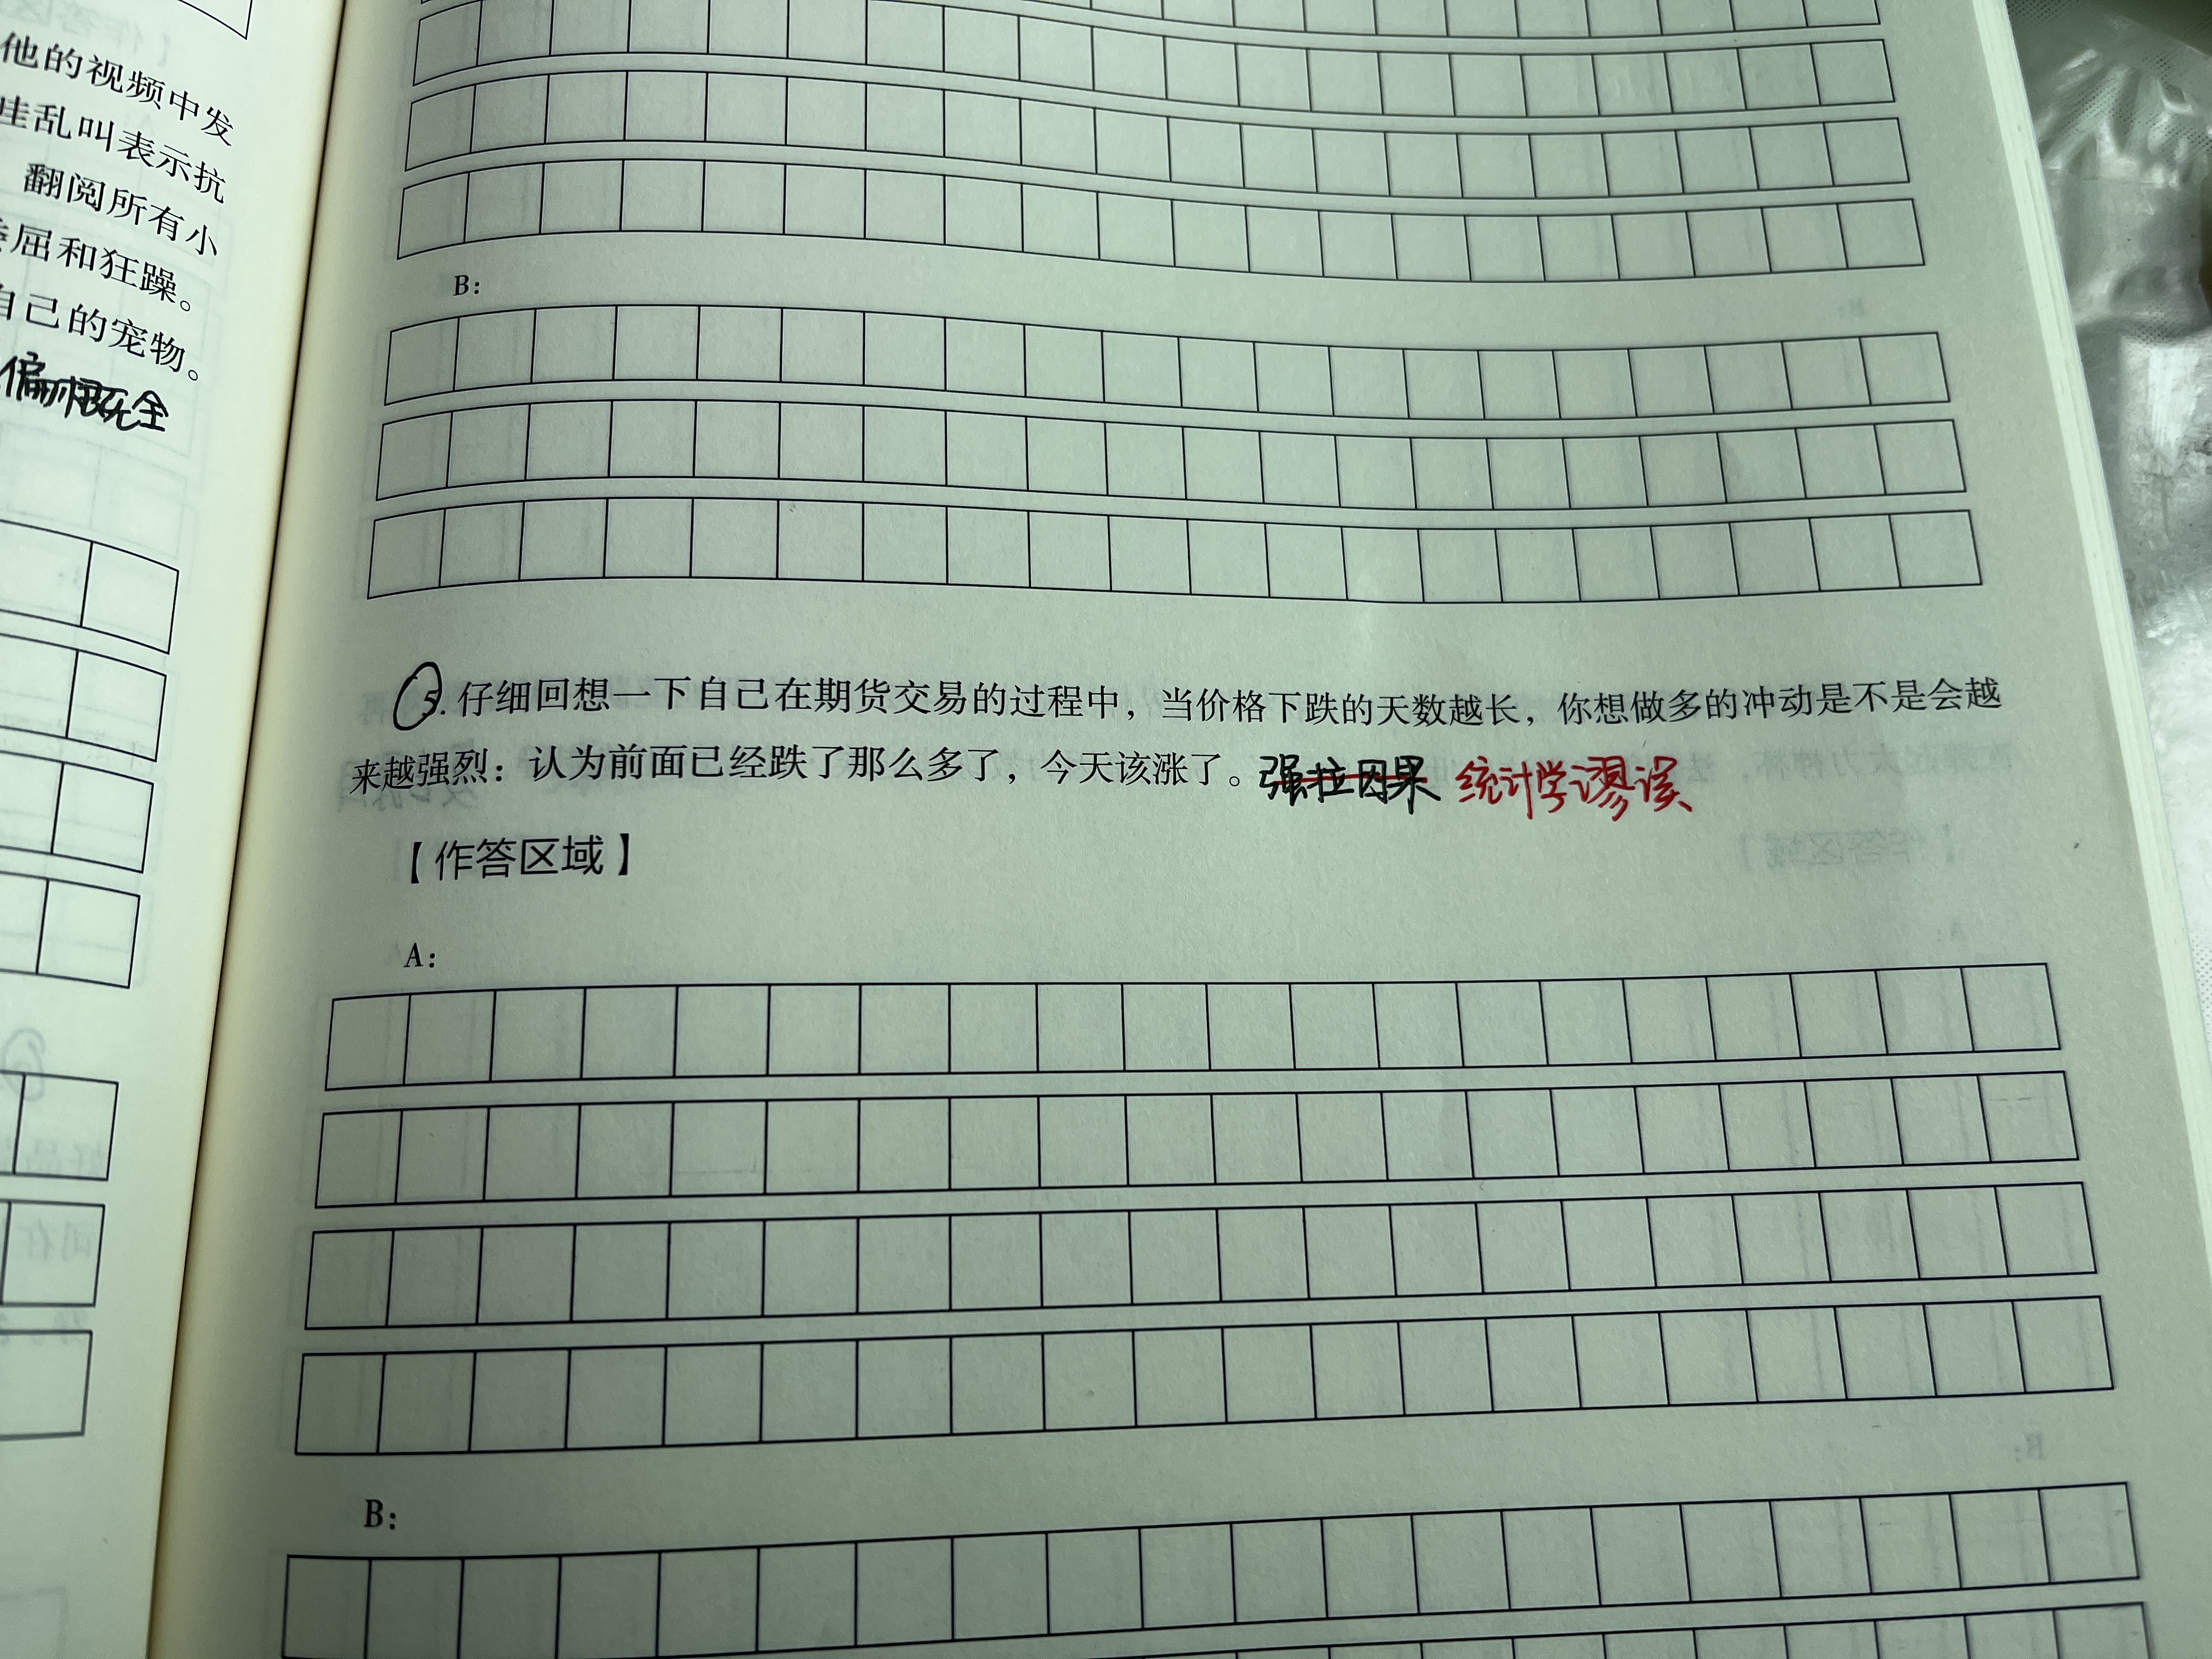 他的视频中发
哇乱叫表示抗
翻阅所有小
屈和狂躁。
自己的宠物。
偏概全
B：
5. 仔细回想一下自己在期货交易的过程中，当价格下跌的天数越长，你想做多的冲动是不是会越
来越强烈：认为前面已经跌了那么多了，今天该涨了。强拉因果 统计学谬误
【作答区域】
A：
B：